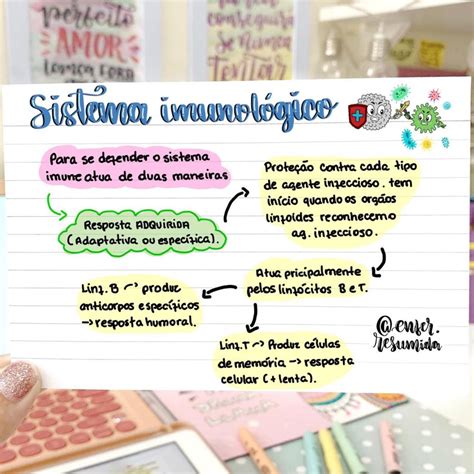 perfeito
AMOR
lança fora
se nunca
tentar
Sistema imunológico
Para se defender o sistema
imune atua de duas maneiras
Resposta ADQUIRIDA
(Adaptativa ou específica).
Proteção contra cada tipo
de agente infeccioso. tem
início quando os orgãos
linfoides reconhecem o
ag. infeccioso.
Atua pricipalmente
pelos linfócitos B e T.
Linf. B → produz
anticorpos específicos
→ resposta humoral.
Linf. T → Produz células
de memória → resposta
celular (+ lenta).
@enfer.
resumida